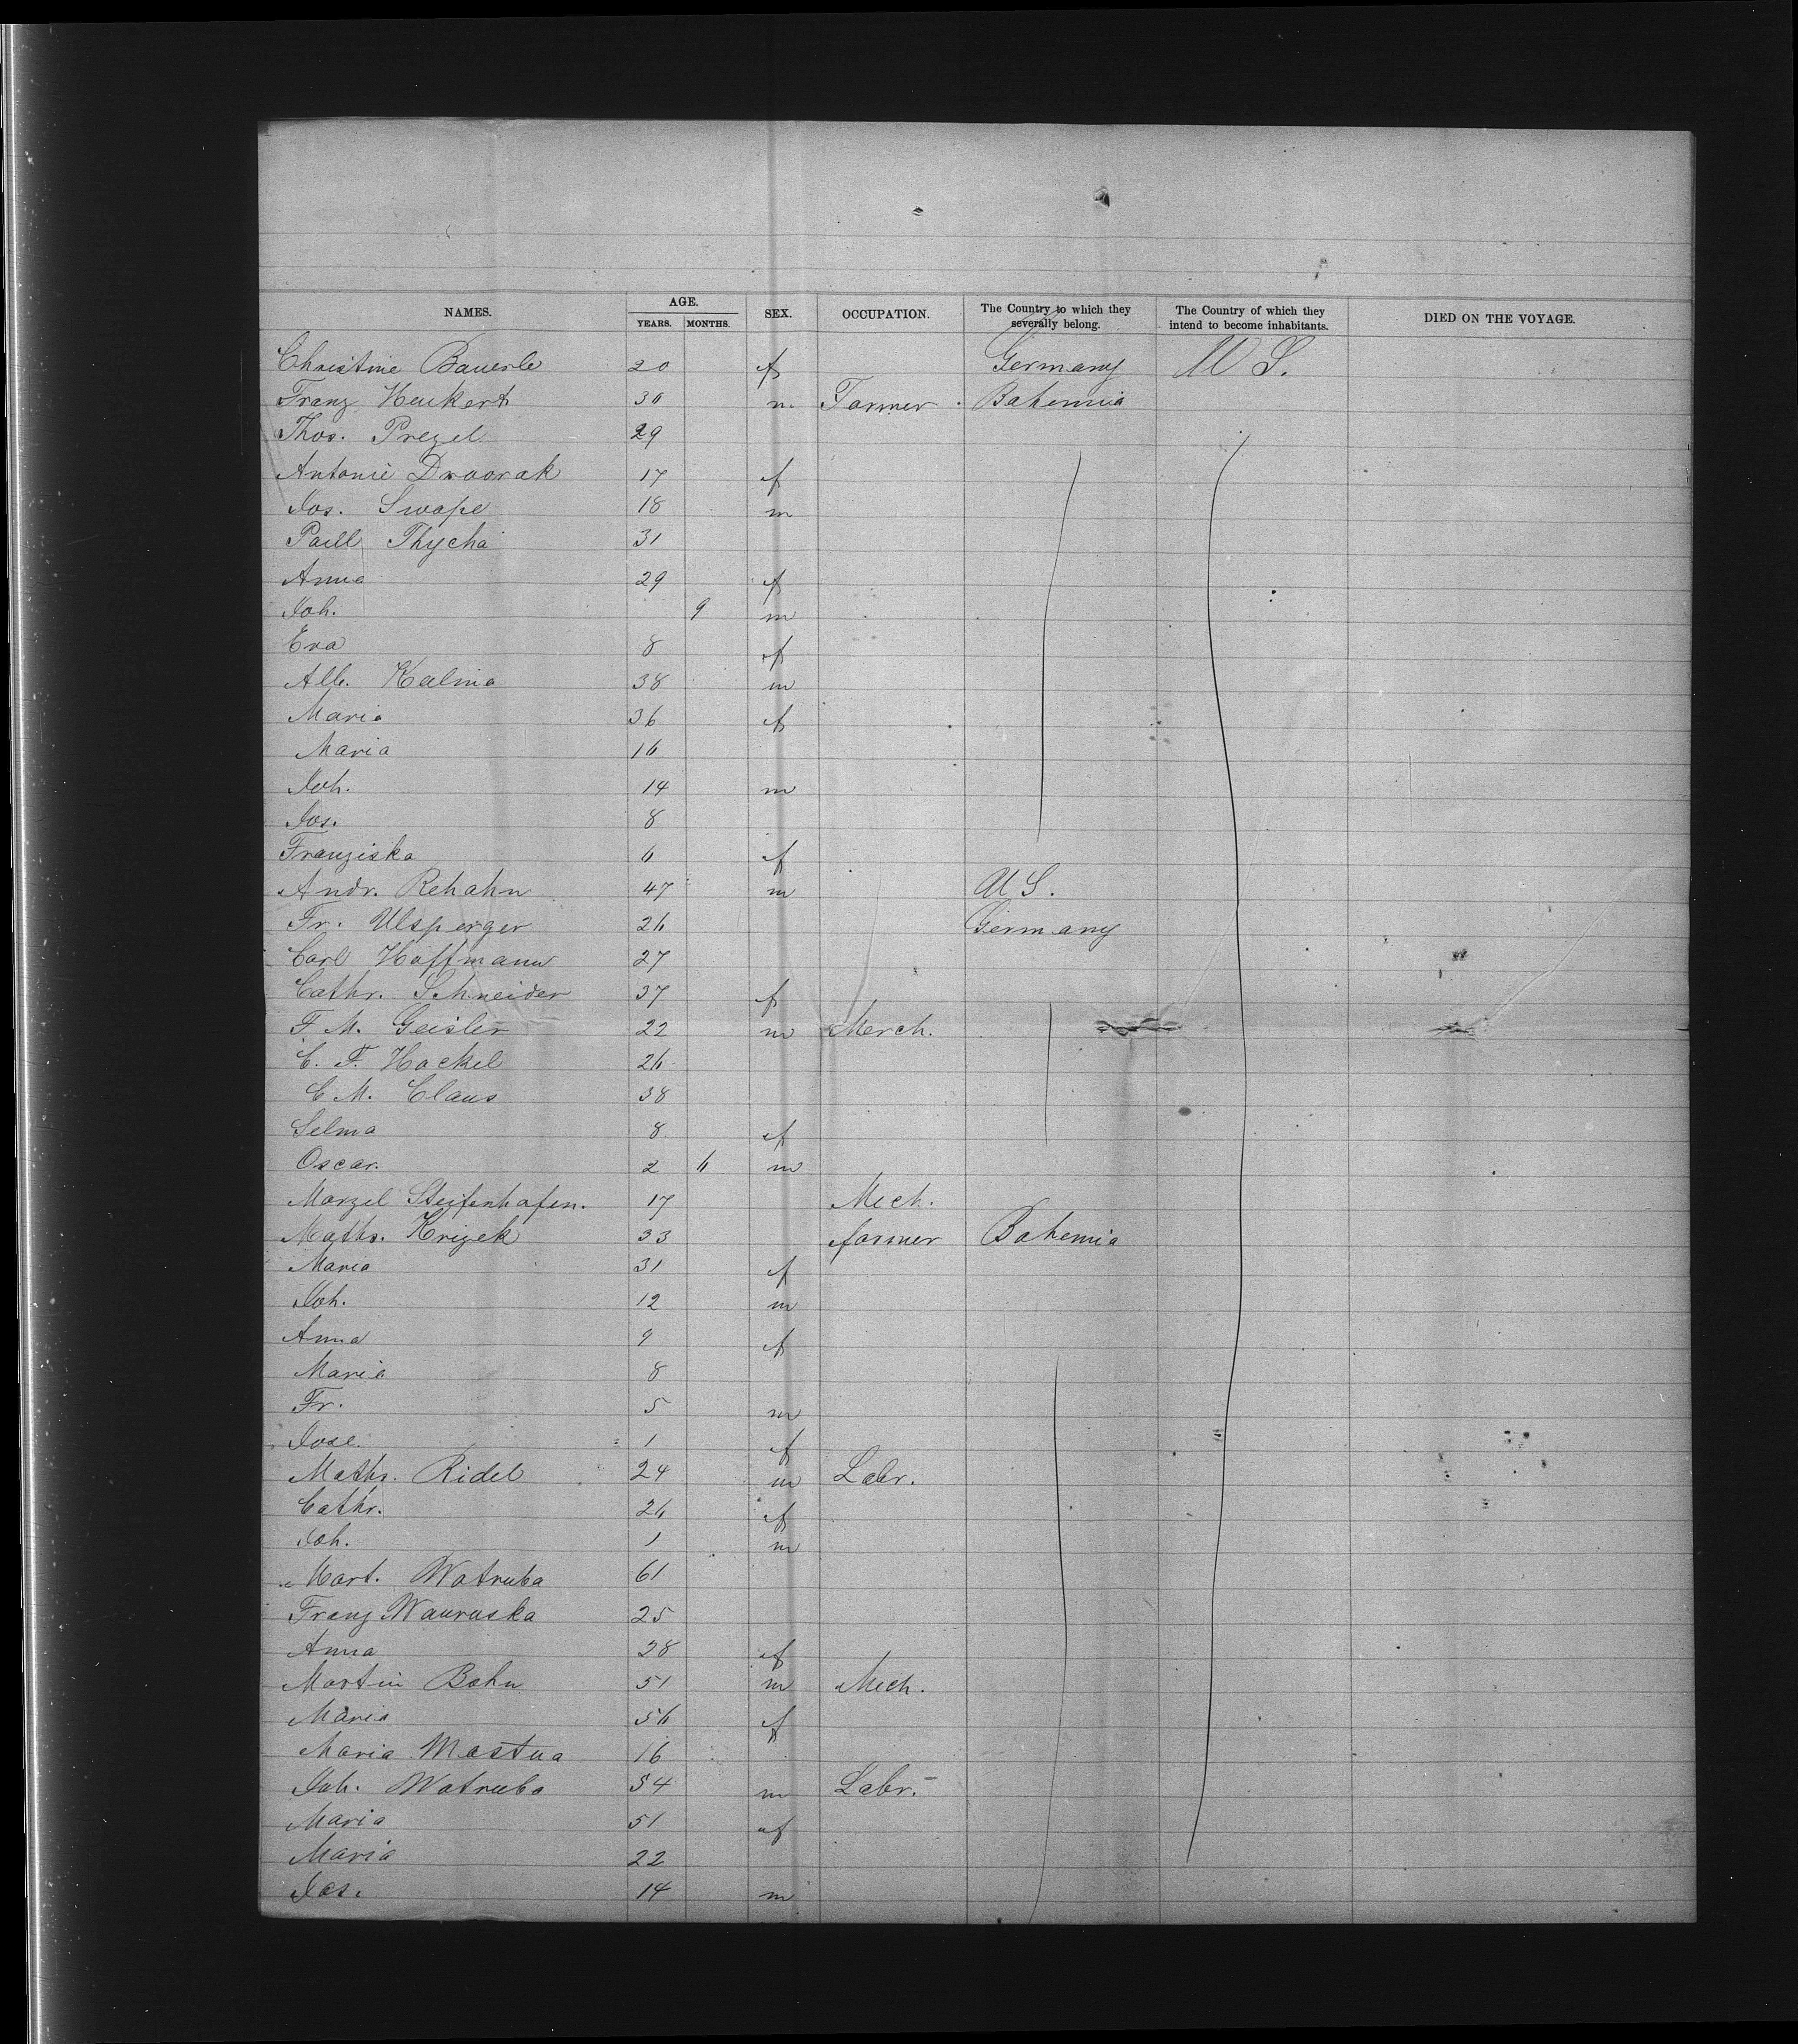 NAMES. AGE. YEARS. MONTHS. SEX. OCCUPATION. The Country to which they severally belong. The Country of which they intend to become inhabitants. DIED ON THE VOYAGE.
Christine Bauerle 20 f Germany U S.
Franz Heukert 36 m Farmer Bohemia
Thos. Prezel 29
Antonie Dvoorak 17 f
Jos. Swope 18 m
Paill Thycha 31
Anna 29 f
Joh. 9 m
Eva 8 f
Alb. Kalina 38 m
Maria 36 f
Maria 16
Joh. 14 m
Jos. 8
Franziska 6 f
Andr. Rehahn 47 m U S.
Fr. Ulsperger 26 Germany
Carl Hoffmann 27
Cathr. Schneider 37 f
F. M. Geisler 22 m Merch.
C. F. Hackel 26
C M. Claus 38
Selma 8 f
Oscar. 2 6 m
Marzel Steifenhofen. 17 Mech.
Maths. Krizek 33 farmer Bohemia
Maria 31 f
Joh. 12 m
Anna 9 f
Maria 8
Fr. 5 m
Jose. 1 f
Maths. Ridel 24 m Labr.
Cathr. 26 f
Joh. 1 m
Mart. Watruba 61
Franz Wauruska 25
Anna 28 f
Martin Bohn 51 m Mech.
Maria 56 f
Maria Mastua 16
Joh. Watruba 54 m Labr.
Maria 51 f
Maria 22
Jos. 14 m